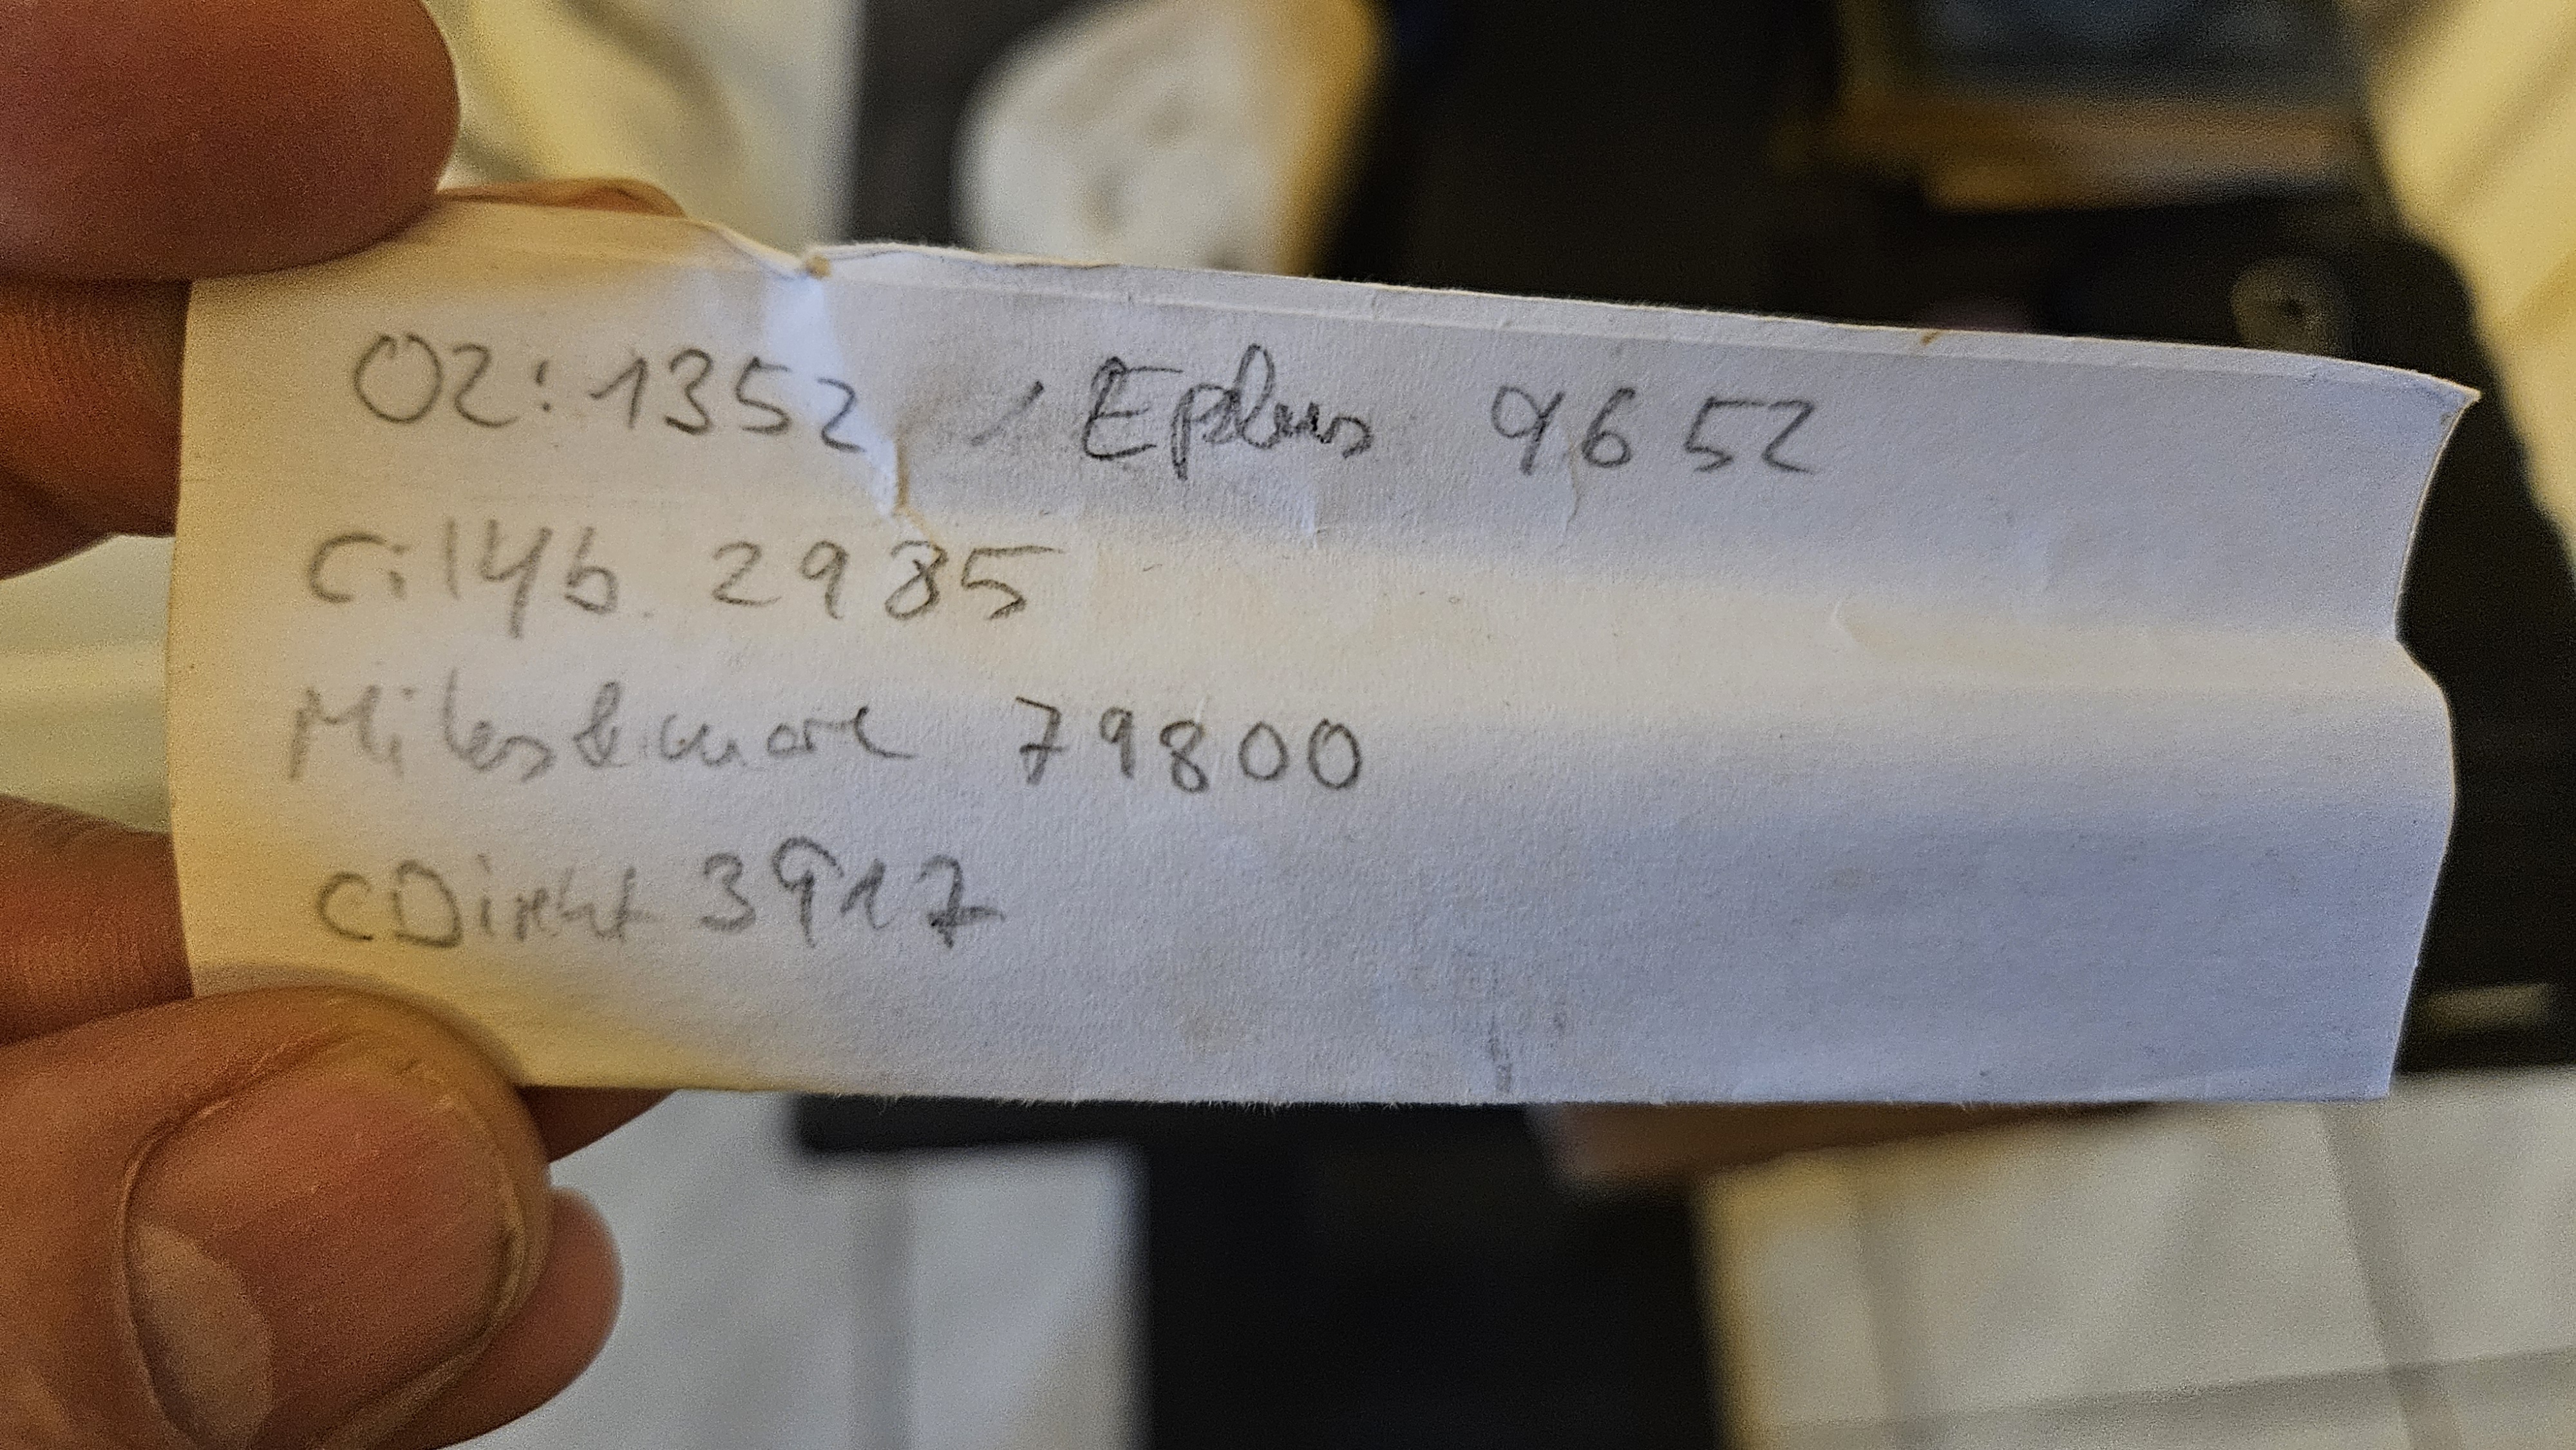 O2: 1352, Eplus 9652
Cityb. 2985
Miles&more 79800
CDirekt 3917